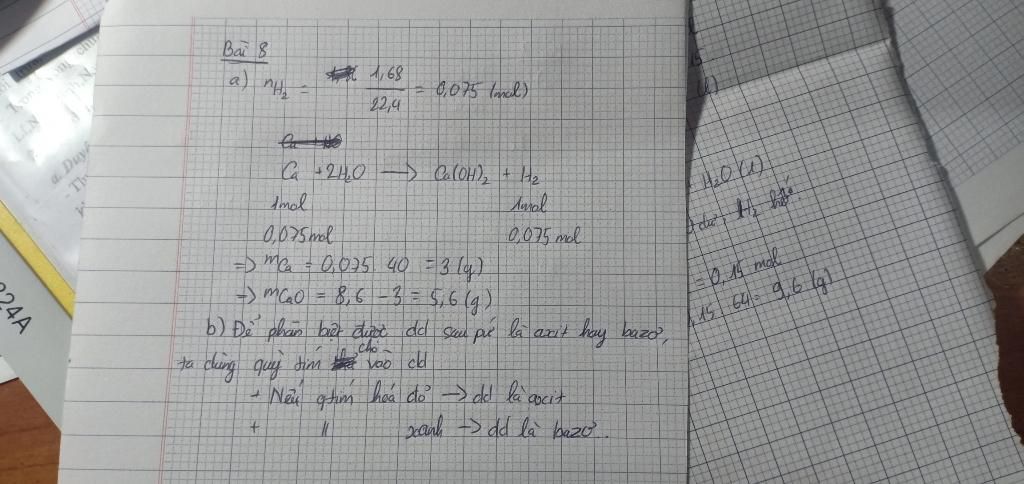 Bài 8
a) nH₂ = 1,68/22,4 = 0,075 (mol)
Ca + 2H₂O → Ca(OH)₂ + H₂
1mol 1mol
0,075mol 0,075 mol
=> mCa = 0,075 40 = 3 (g)
-> mCaO = 8,6 - 3 = 5,6 (g)
b) Để phân biệt được dd sau pứ là axit hay bazơ,
ta dùng quỳ tím cho vào dd
+ Nếu qtím hoá đỏ -> dd là axit
+ " xanh -> dd là bazơ.
H₂O (l)
dư, H₂
= 0,15 mol
,15 64 = 9,6 (g)
24A
a. Duy